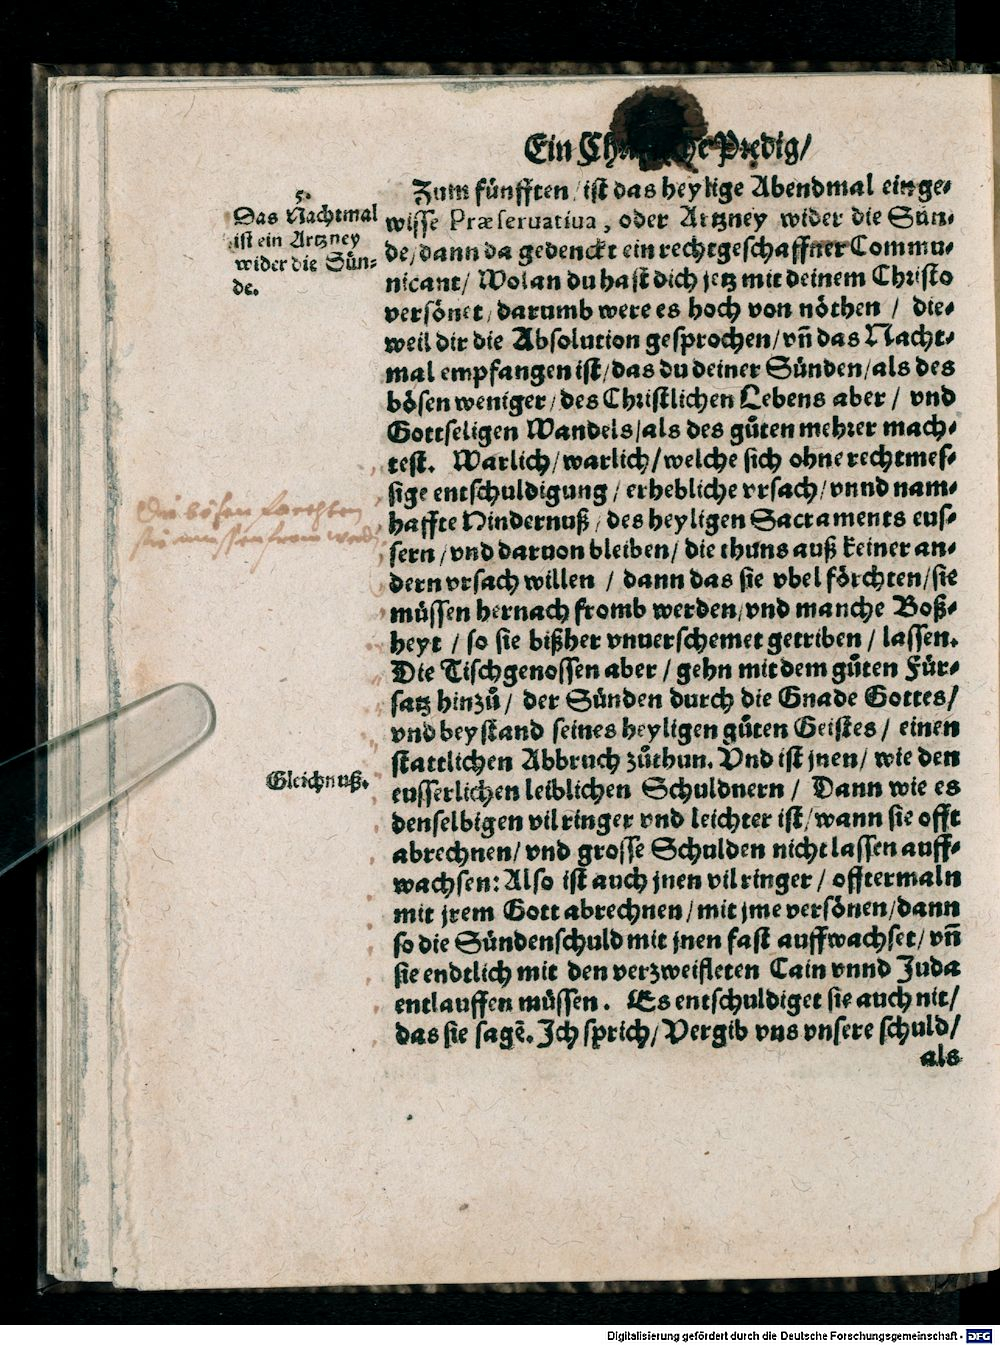 Ein Chr he Predig/
5.
Das Nachtmal
ist ein Artzney
wider die Sün-
de.
Zum fünfften/ ist das heylige Abendmal ein ge-
wisse Præseruatiua, oder Artzney wider die Sün-
de/ dann da gedenckt ein rechtgeschaffner Commu-
nicant/ Wolan du hast dich jetz mit deinem Christo
versönet/ darumb were es hoch von nöthen / die-
weil dir die Absolution gesprochen/ vñ das Nacht-
mal empfangen ist/ das du deiner Sünden/ als des
bösen weniger/ des Christlichen Lebens aber / vnd
Gottseligen Wandels/ als des gůten mehrer mach-
test. Warlich/ warlich/ welche sich ohne rechtmes-
sige entschuldigung / erhebliche vrsach/ vnnd nam-
haffte Hindernuß/ des heyligen Sacraments eus-
sern/ vnd daruon bleiben/ die thuns auß keiner an-
dern vrsach willen / dann das sie vbel förchten/ sie
müssen hernach fromb werden/ vnd manche Boß-
heyt / so sie bißher vnuerschemet getriben / lassen.
Die Tischgenossen aber / gehn mit dem gůten Für-
satz hinzů/ der Sünden durch die Gnade Gottes/
vnd beystand seines heyligen gůten Geistes/ einen
stattlichen Abbruch zůthun. Vnd ist jnen/ wie den
eusserlichen leiblichen Schuldnern / Dann wie es
denselbigen vil ringer vnd leichter ist/ wann sie offt
abrechnen/ vnd grosse Schulden nicht lassen auff-
wachsen: Also ist auch jnen vil ringer / offtermaln
mit jrem Gott abrechnen/ mit jme versönen/ dann
so die Sündenschuld mit jnen fast auffwachset/ vñ
sie endtlich mit den verzweifleten Cain vnnd Juda
entlauffen müssen. Es entschuldiget sie auch nit/
das sie sagẽ. Ich sprich/ Vergib vns vnsere schuld/
als
Die bösen forchten
sie müssen from werd
Gleichnuß.
Digitalisierung gefördert durch die Deutsche Forschungsgemeinschaft - DFG